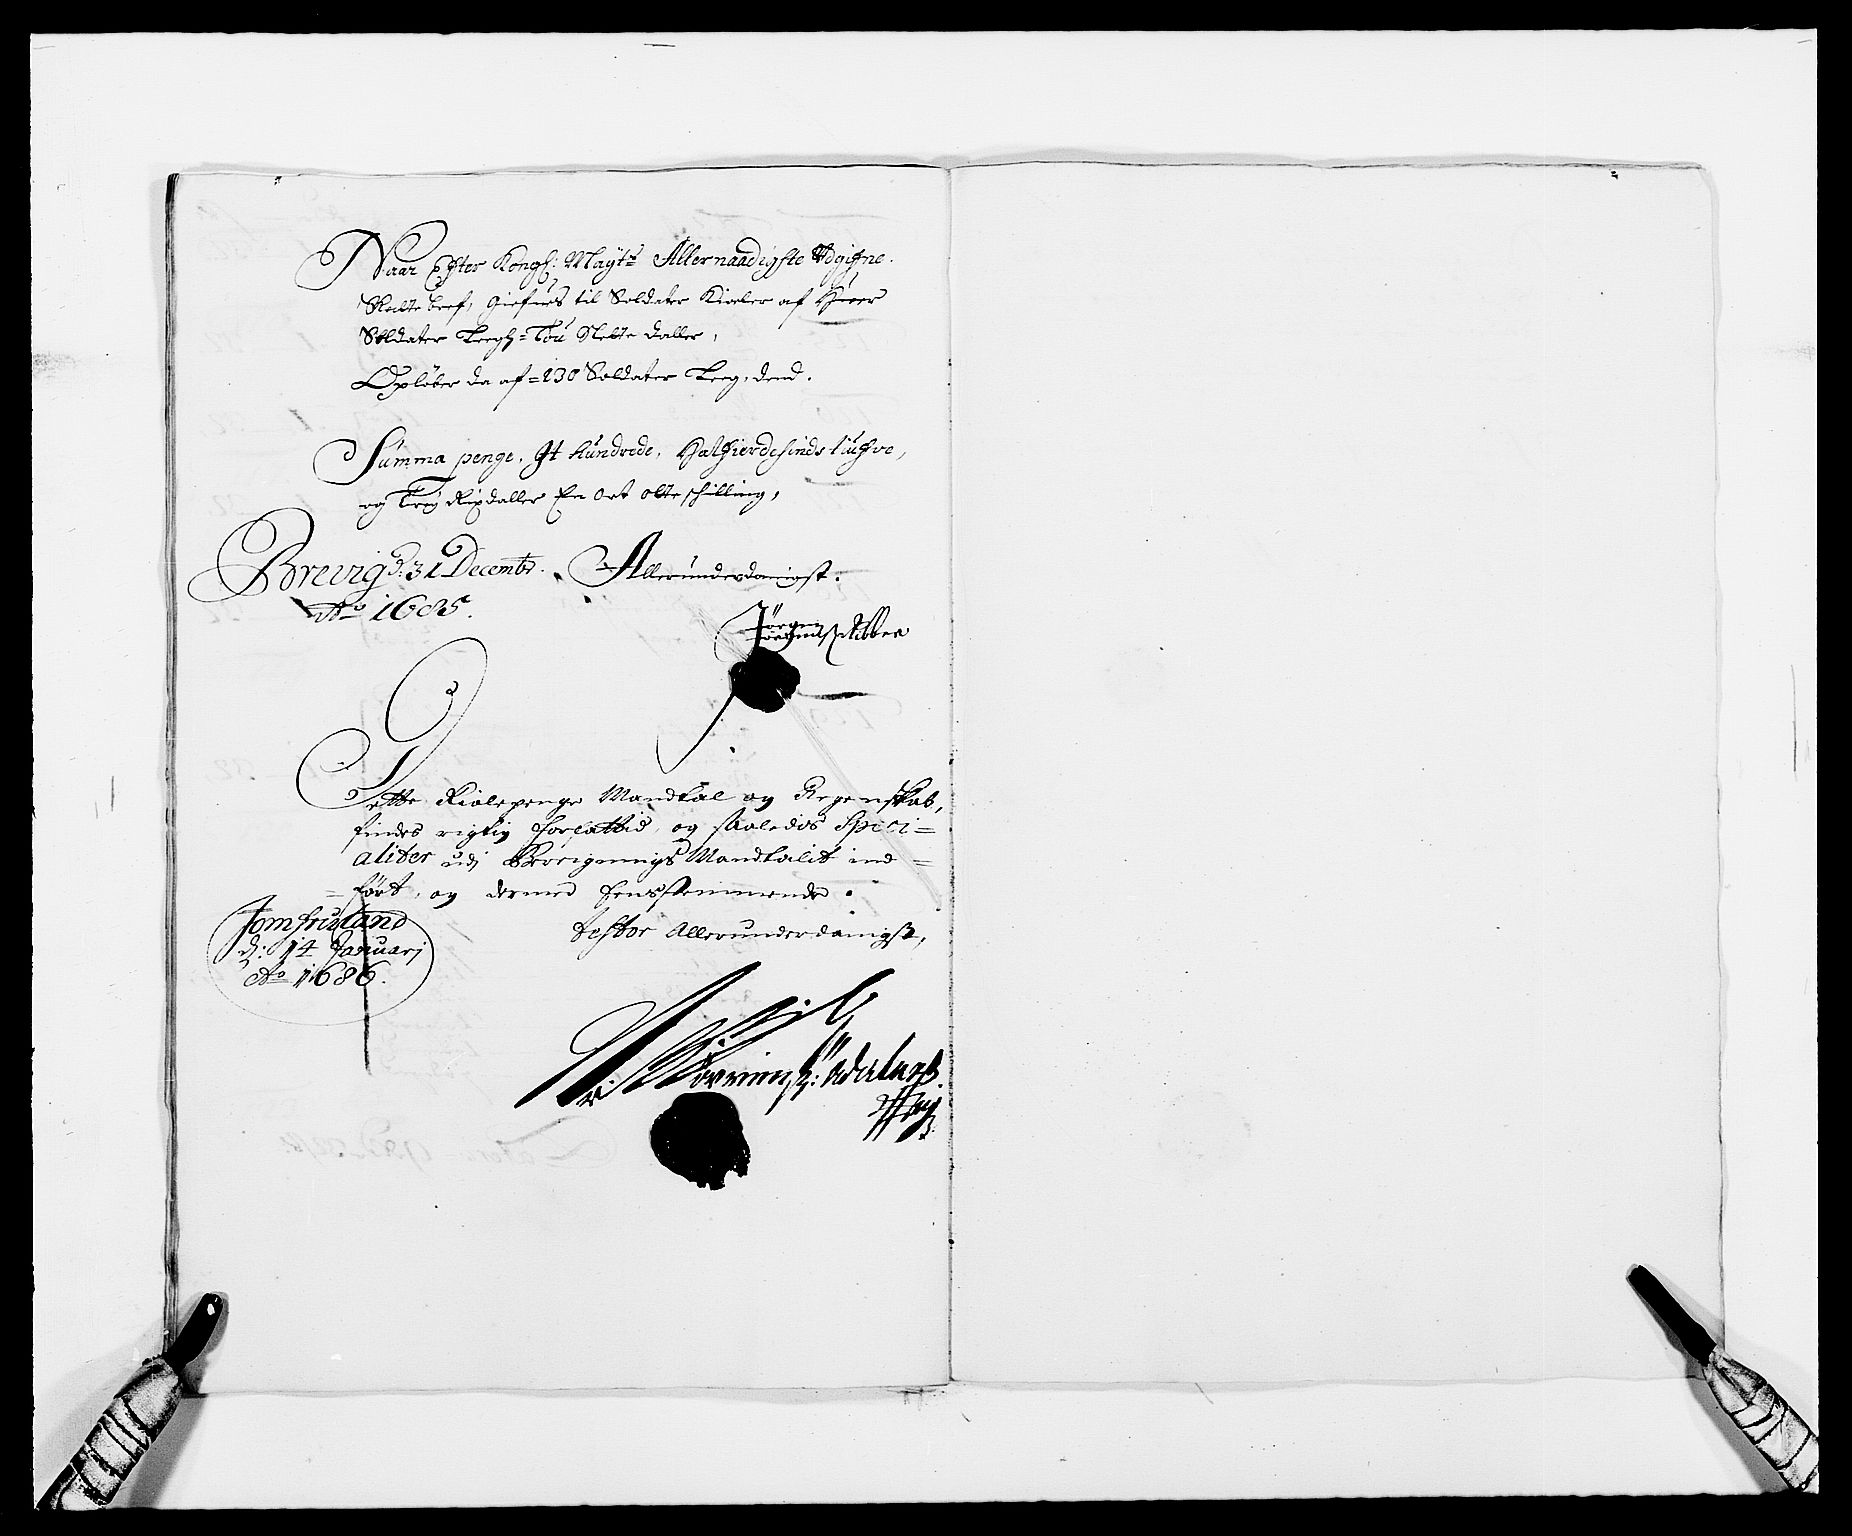 Naar Efter Kongl: Mayts Allernaadigste Udgifne
Skatte bref, Giefues til Soldater Kioler af Huer
Soldater Legh = Tou Slette daller,
Opløber da af = 130 Soldater Leg, dend.
Summa penge, Et hundrede, Halfierdesinds tiufve,
og Trej Rixdaller En Ort otte schilling,
Brevig d: 31 Decembr. Allerunderdanigst.
Ao 1685.
Jørgen
Dette Kiolepenge Mandtal og Regenskab,
findes rigtig forfattid, og saaledis Speci=
aliter udj Mandtalit ind=
=ført, og dermed offuerensstemmende.
Jomfruland
d: 14 Januarj
Ao 1686.
testor Allerunderdanigst,